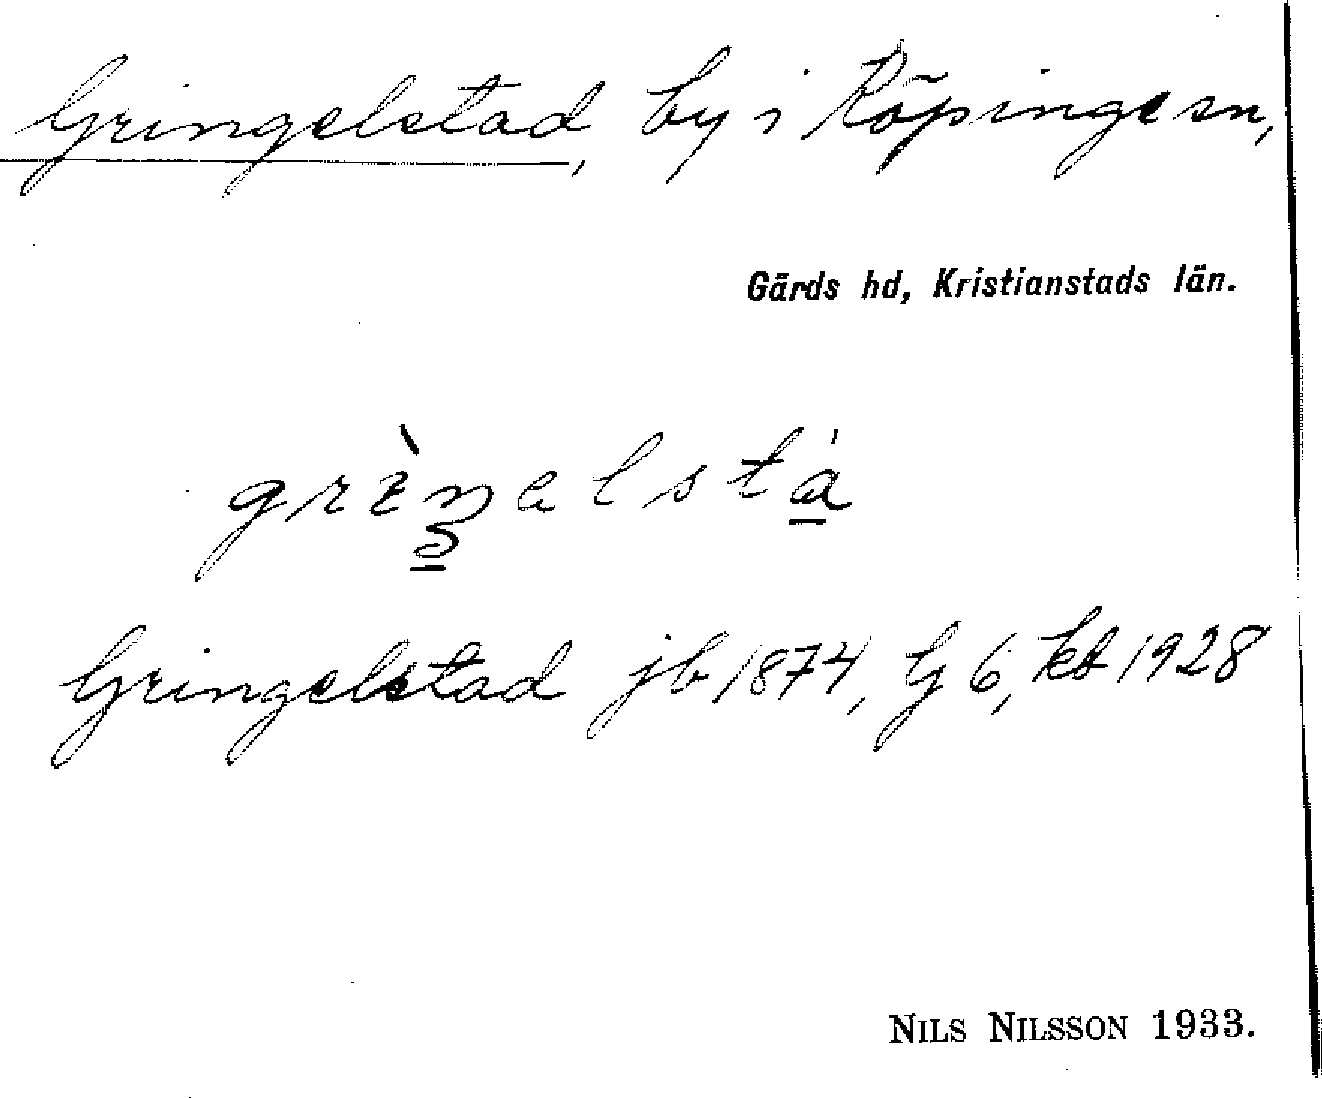 Gringelstad, by i Köpinge sn,
Gärds hd, Kristianstads län.
Gringelstad jb 1874, G 6, kt 1928
NILS NILSSON 1933.